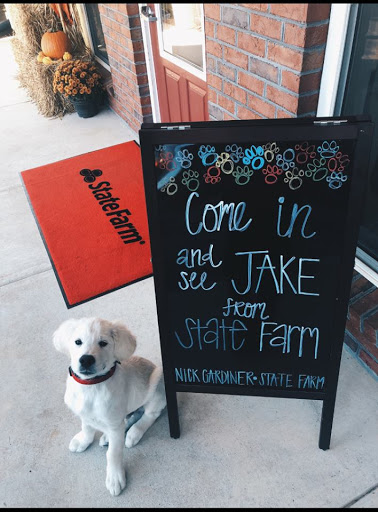 StateFarm
Come in
and see JAKE
from
State Farm
NICK GARDINER • STATE FARM